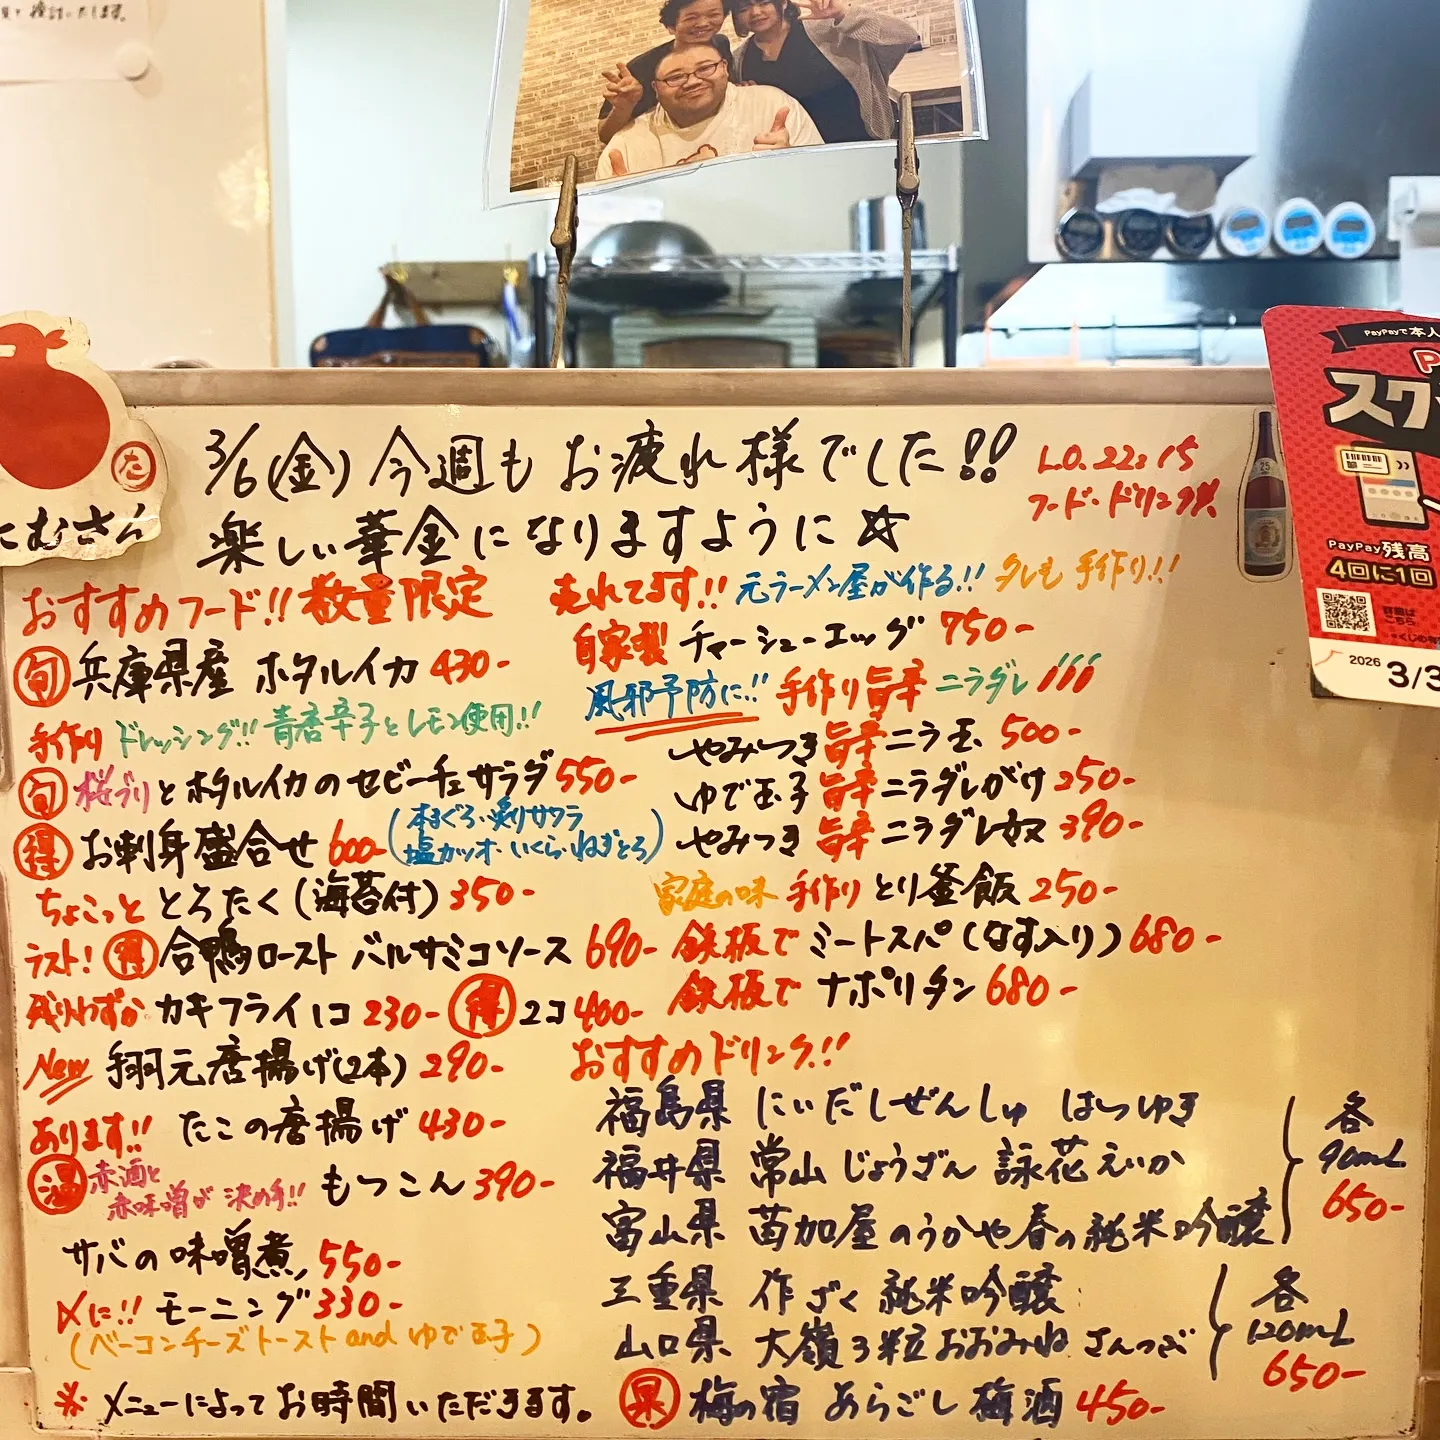 検討いたします。
たむさん
た
3/6(金) 今週も お疲れ様でした!!
楽しい華金になりますように☆
L.O. 22:15
フード・ドリンク共
おすすめフード!! 数量限定
旬 兵庫県産 ホタルイカ 430-
手作り ドレッシング!! 青唐辛子とレモン使用!!
旬 桜ブリとホタルイカのセビーチェサラダ 550-
得 お刺身盛合せ 600- (本まぐろ・炙りサワラ
塩カツオ・いくら・ねぎとろ)
ちょこっと とろたく(海苔付) 350-
ラスト! 得 合鴨ロースト バルサミコソース 690-
残りわずか カキフライ 1コ 230- 得 2コ 400-
New 手羽元唐揚げ(2本) 290-
あります!! たこの唐揚げ 430-
温 赤酒と
赤味噌が 決め手!! もつこん 390-
サバの味噌煮 550-
〆に!! モーニング 330-
(ベーコンチーズトースト and ゆで玉子)
※ メニューによってお時間いただきます。
売れてます!! 元ラーメン屋が作る!! タレも 手作り!!
自家製 チャーシューエッグ 750-
風邪予防に!! 手作り旨辛 ニラダレ
やみつき旨辛ニラ玉 500-
ゆで玉子 旨辛 ニラダレがけ 250-
やみつき 旨辛 ニラダレ奴 390-
家庭の味 手作り とり釜飯 250-
鉄板で ミートスパ(なす入り) 680-
鉄板で ナポリタン 680-
おすすめドリンク!!
福島県 にいだしぜんしゅ はつゆき
福井県 常山 じょうざん 詠花 えいか
富山県 苗加屋 のうかや春の純米吟醸
各
90mL
650-
三重県 作 ざく 純米吟醸
山口県 大嶺3粒 おおみね さんつぶ
各
120mL
650-
果 梅の宿 あらごし 梅酒 450-
25
PayPayで本人
スク
PayPay残高
4回に1回
詳細は
こちら
2026 3/3